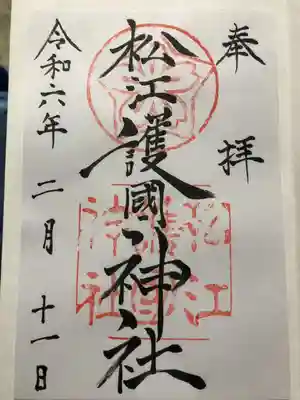 奉拝
松江護國神社
令和六年二月十一日
松江
護國
神社